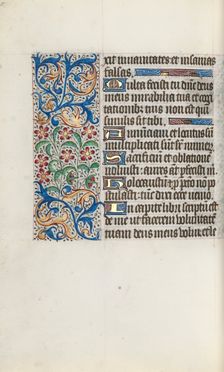 xit in vanitates et insanias
falsas.
Multa fecisti tu dñe deus
meus mirabilia tua et cogi
tationibus tuis non est qui
similis sit tibi.
Annunciavi et locutus sum
multiplicati sunt super numer
Sacrificium et oblatione
noluisti: aures aũt perfecisti m
Holocaustum et pro pctõ no
postulasti: tunc dixi ecce venio.
In capite libri scriptũ est
de me ut facerem voluntatẽ
tuam deus meus volui et le